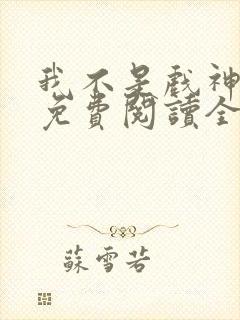 我不是戲神
免費閱讀全
蘇雪若